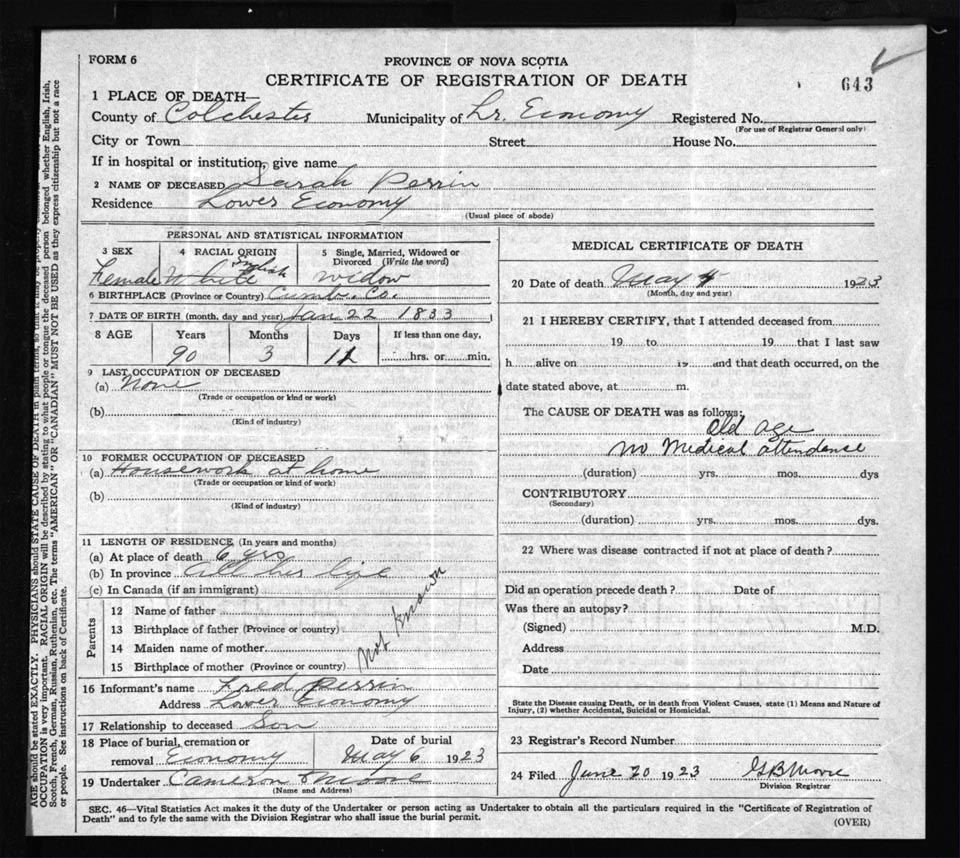 FORM 6
PROVINCE OF NOVA SCOTIA
CERTIFICATE OF REGISTRATION OF DEATH
643
1 PLACE OF DEATH—
County of Colchester Municipality of Lr. Economy Registered No.
(For use of Registrar General only)
City or Town Street House No.
If in hospital or institution, give name
2 NAME OF DECEASED Sarah Perrin
Residence Lower Economy
(Usual place of abode)
PERSONAL AND STATISTICAL INFORMATION
3 SEX
Female
4 RACIAL ORIGIN
White English
5 Single, Married, Widowed or Divorced (Write the word)
widow
6 BIRTHPLACE (Province or Country) Cumb. Co.
7 DATE OF BIRTH (month, day and year) Jan 22 1833
8 AGE Years Months Days If less than one day,
90 3 hrs. or min.
9 LAST OCCUPATION OF DECEASED
(a) None
(Trade or occupation or kind or work)
(b)
(Kind of industry)
10 FORMER OCCUPATION OF DECEASED
(a) Housework at home
(Trade or occupation or kind of work)
(b)
(Kind of industry)
11 LENGTH OF RESIDENCE (In years and months)
(a) At place of death 6 yrs
(b) In province All her life
(c) In Canada (if an immigrant)
Parents
12 Name of father
13 Birthplace of father (Province or country)
14 Maiden name of mother
15 Birthplace of mother (Province or country)
Not known
16 Informant's name Fred Perrin
Address Lower Economy
17 Relationship to deceased Son
18 Place of burial, cremation or removal Economy
Date of burial
May 6 1923
19 Undertaker Cameron
(Name and Address)
MEDICAL CERTIFICATE OF DEATH
20 Date of death May 4 1923
(Month, day and year)
21 I HEREBY CERTIFY, that I attended deceased from
19 to 19 that I last saw
h alive on 19 and that death occurred, on the
date stated above, at m.
The CAUSE OF DEATH was as follows:
Old age
No Medical attendance
(duration) yrs. mos. dys
CONTRIBUTORY
(Secondary)
(duration) yrs. mos. dys.
22 Where was disease contracted if not at place of death?
Did an operation precede death? Date of
Was there an autopsy?
(Signed) M.D.
Address
Date
State the Disease causing Death, or in death from Violent Causes, state (1) Means and Nature of
Injury, (2) whether Accidental, Suicidal or Homicidal.
23 Registrar's Record Number
24 Filed June 20 1923 G B Moore
Division Registrar
SEC. 46—Vital Statistics Act makes it the duty of the Undertaker or person acting as Undertaker to obtain all the particulars required in the "Certificate of Registration of
Death" and to fyle the same with the Division Registrar who shall issue the burial permit.
(OVER)
AGE should be stated EXACTLY. PHYSICIANS should STATE CAUSE OF DEATH in plain terms, so that it may be properly
OCCUPATION is very important. RACIAL ORIGIN will be described by stating to what people or tongue the deceased person belonged whether English, Irish,
Scotch, French, German, Russian, Ruthenian, etc. The terms "AMERICAN" OR "CANADIAN" MUST NOT BE USED as they express citizenship but not a race
or people. See instructions on back of Certificate.